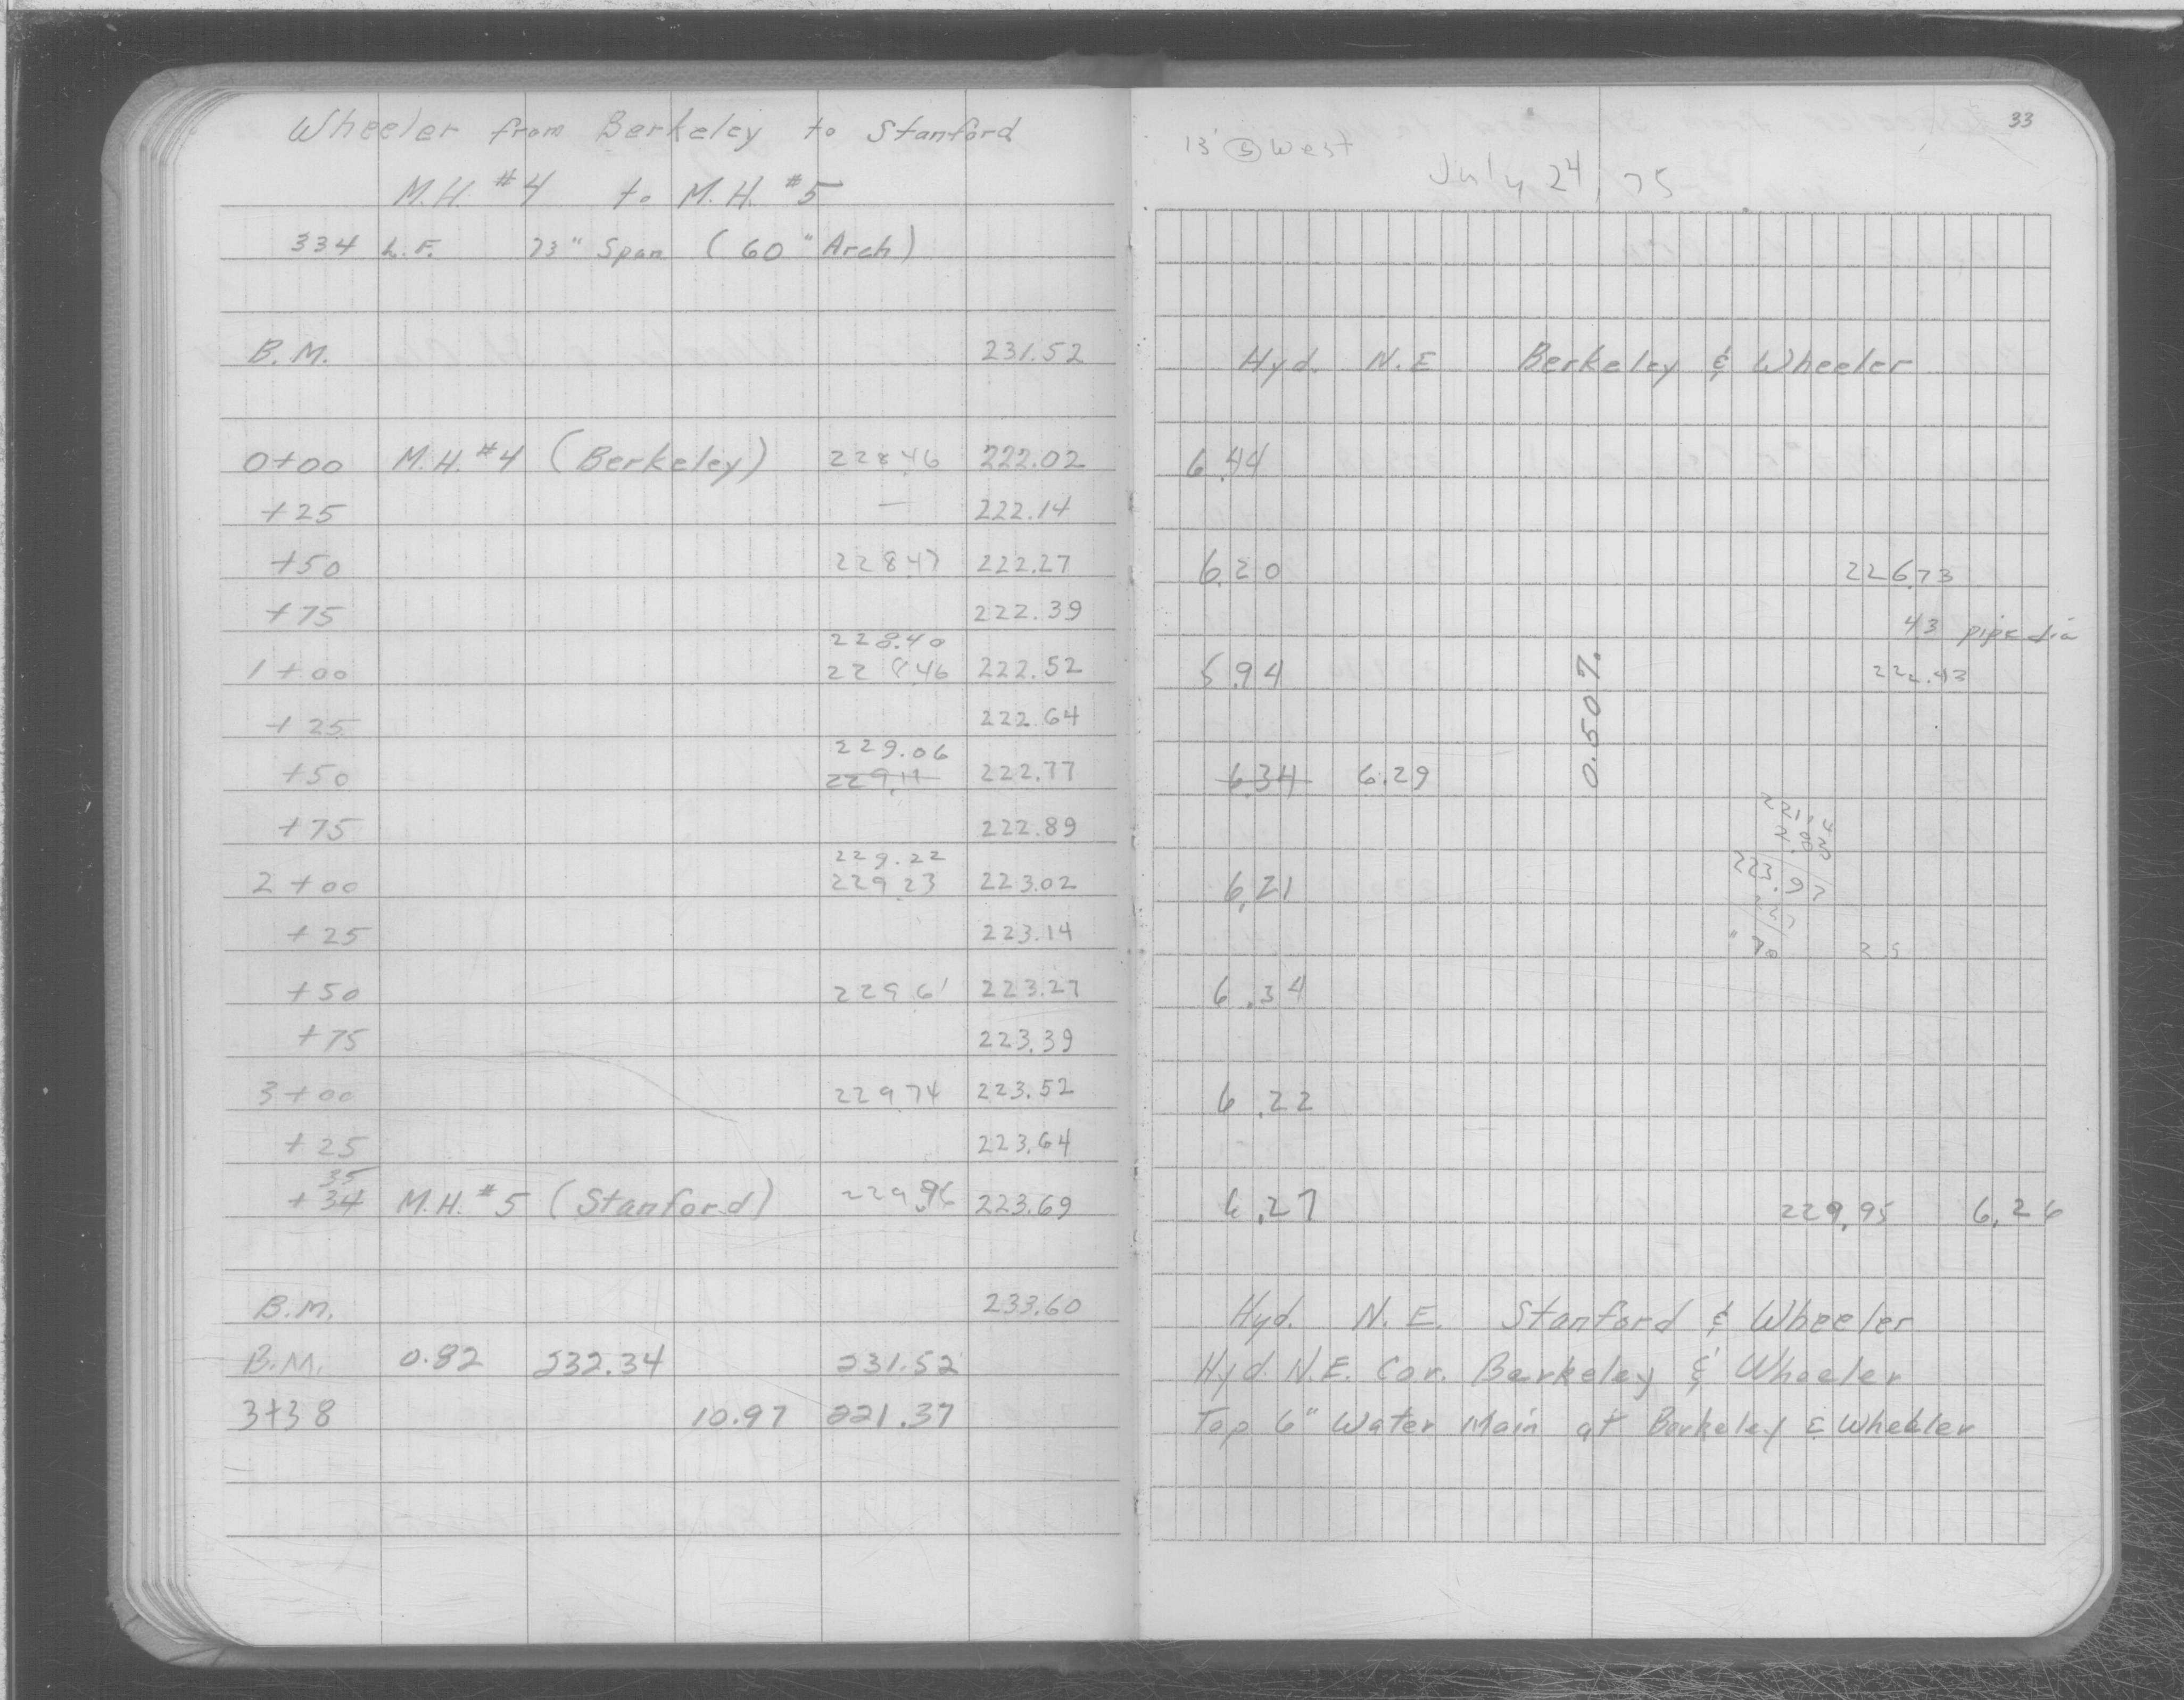 Wheeler from Berkeley to Stanford
M.H. #4 to M.H. #5
334 L.F. 73" Span (60" Arch)
B.M. 231.52
0+00 M.H. #4 (Berkeley) 228.46 222.02
+25 — 222.14
+50 228.47 222.27
+75 222.39
228.40
1+00 228.46 222.52
+25 222.64
229.06
+50 229.11 222.77
+75 222.89
229.22
2+00 229.23 223.02
+25 223.14
+50 229 61 223.27
+75 223.39
3+00 229 74 223.52
+25 223.64
35
+34 M.H. #5 (Stanford) 229.96 223.69
B.M. 233.60
B.M. 0.82 232.34 231.52
3+38 10.97 221.37
33
13' (S) West
July 24, 75
Hyd. N.E Berkeley & Wheeler
6.44
6.20 226.73
43 pipe dia
5.94 222.43
0.50%
6.34 6.29
6.21
223.97
70
6.34
6.22
6.27 229.95 6.26
Hyd. N.E. Stanford & Wheeler
Hyd. N.E. Cor. Berkeley & Wheeler
Top 6" Water Main at Berkeley & Wheeler